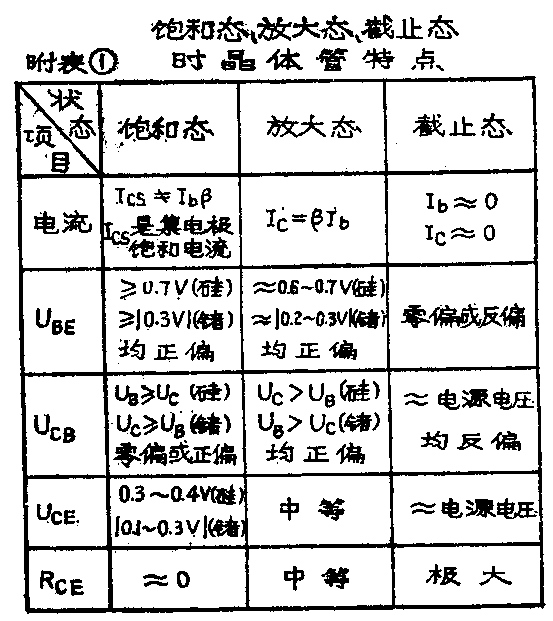 饱和态、放大态、截止态
附表① 时晶体管特点
状态
项目
饱和态 放大态 截止态
电流
I_CS ≠ I_bβ
I_CS是集电极
饱和电流
I_C=βI_b
I_b≈0
I_C≈0
U_BE
≥0.7V(硅)
≥|0.3V|(锗)
均正偏
≈0.6~0.7V(硅)
≈|0.2~0.3V|(锗)
均正偏
零偏或反偏
U_CB
U_B≥U_C(硅)
U_C≥U_B(锗)
零偏或正偏
U_C>U_B(硅)
U_B>U_C(锗)
均正偏
≈电源电压
均反偏
U_CE
0.3~0.4V(硅)
|0.1~0.3V|(锗)
中等
≈电源电压
R_CE
≈0
中等
极大